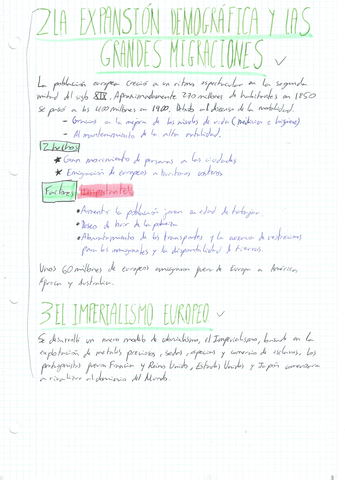 2 LA EXPANSIÓN DEMOGRÁFICA Y LAS
GRANDES MIGRACIONES
La población europea creció a un ritmo espectacular en la segunda
mitad del siglo XIX. Aproximadamente 270 millones de habitantes en 1850
se pasó a los 400 millones en 1900. Debido al descenso de la mortalidad.
- Gracias a la mejora de los niveles de vida (medicina e higiene)
- Al mantenimiento de la alta natalidad.
2 hechos
* Gran movimiento de personas a las ciudades
* Emigración de europeos a territorios
Factores importantes
• Aumentó la población joven en edad de trabajar.
• Deseo de huir de la pobreza
• Abaratamiento de los transportes y la ausencia de restricciones
para los inmigrantes y la disponibilidad de tierras.
Unos 60 millones de europeos emigraron fuera de Europa a América,
África y Australia.
3 EL IMPERIALISMO EUROPEO
Se desarrolló un nuevo modelo de colonialismo, el Imperialismo, basado en la
explotación de metales preciosos, sedas, especias y comercio de esclavos. Los
protagonistas fueron Francia y Reino Unido, Estados Unidos y Japón comenzaron
a rivalizar el dominio del Mundo.